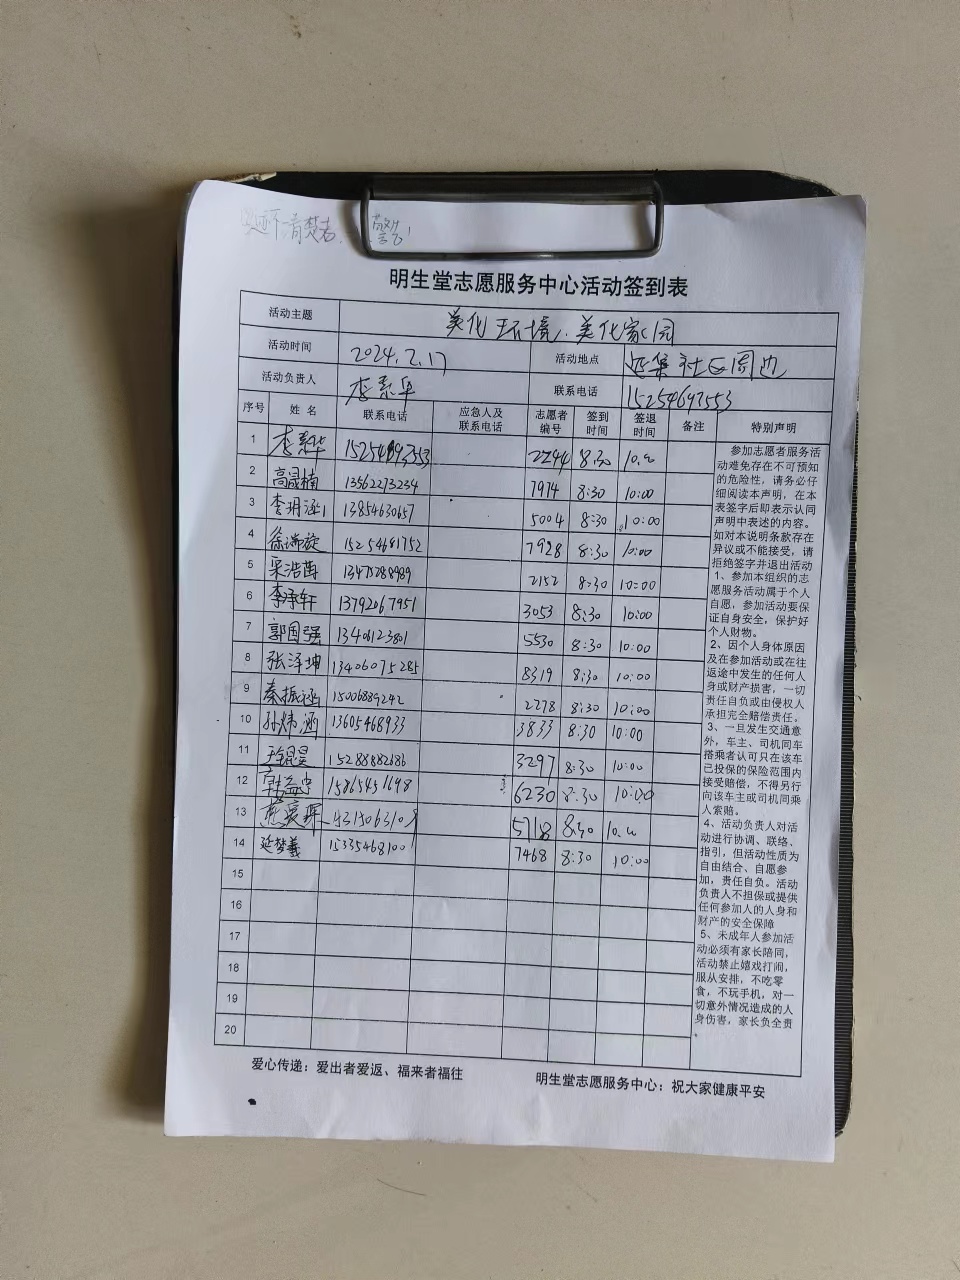 字迹清楚者.
明生堂志愿服务中心活动签到表
活动主题 美化环境.美化家园
活动时间 2024.2.17 活动地点 延集社区周边
活动负责人 联系电话 15254697553
序号 姓名 联系电话 应急人及联系电话 志愿者编号 签到时间 签退时间 备注 特别声明
1 2244 8:30 10:00
2 高晟楠 13562273234 7974 8:30 10:00
3 李玥涵 13854630657 5004 8:30 10:00
4 徐瑞旋 15254681752 7928 8:30 10:00
5 13475288989 2152 8:30 10:00
6 李承轩 13792067951 3053 8:30 10:00
7 郭国强 13406123801 5530 8:30 10:00
8 张泽坤 13406075285 8319 8:30 10:00
9 秦振涵 15006889242 2278 8:30 10:00
10 孙炜涵 13605468933 3833 8:30 10:00
11 15288882686 3297 8:30 10:00
12 韩益宁 15865451698 6230 8:30 10:00
13 5718 8:30 10:00
14 延梦羲 15335468100 7468 8:30 10:00
15
16
17
18
19
20
参加志愿者服务活
动难免存在不可预知
的危险性，请务必仔
细阅读本声明，在本
表签字后即表示认同
声明中表述的内容。
如对本说明条款存在
异议或不能接受，请
拒绝签字并退出活动
1、参加本组织的志
愿服务活动属于个人
自愿，参加活动要保
证自身安全，保护好
个人财物。
2、因个人身体原因
及在参加活动或在往
返途中发生的任何人
身或财产损害，一切
责任自负或由侵权人
承担完全赔偿责任。
3、一旦发生交通意
外，车主、司机同车
搭乘者认可只在该车
已投保的保险范围内
接受赔偿，不得另行
向该车主或司机同乘
人索赔。
4、活动负责人对活
动进行协调、联络、
指引，但活动性质为
自由结合、自愿参
加，责任自负。活动
负责人不担保或提供
任何参加人的人身和
财产的安全保障
5、未成年人参加活
动必须有家长陪同，
活动禁止嬉戏打闹，
服从安排，不吃零
食，不玩手机，对一
切意外情况造成的人
身伤害，家长负全责
爱心传递：爱出者爱返、福来者福往 明生堂志愿服务中心：祝大家健康平安